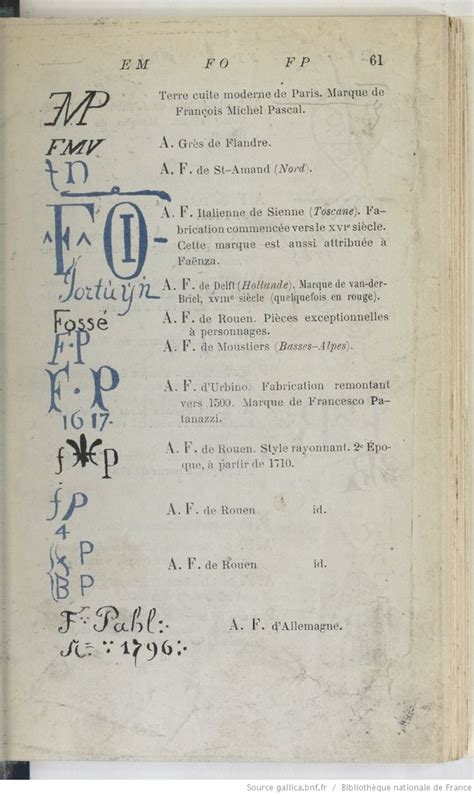 EM FO FP 61
FMP Terre cuite moderne de Paris. Marque de
François Michel Pascal.
FMV A. Grès de Flandre.
A. F. de St-Amand (Nord).
F O I A. F. Italienne de Sienne (Toscane). Fa-
brication commencée vers le XVIe siècle.
Cette marque est aussi attribuée à
Faënza.
Fortuÿn A. F. de Delft (Hollande). Marque de van-der-
Briel, XVIIIe siècle (quelquefois en rouge).
Fossé A. F. de Rouen. Pièces exceptionnelles
à personnages.
F·P A. F. de Moustiers (Basses-Alpes).
F·P A. F. d'Urbino. Fabrication remontant
vers 1500. Marque de Francesco Pa-
tanazzi.
1617
f p A. F. de Rouen. Style rayonnant. 2e Épo-
que, à partir de 1710.
fp A. F. de Rouen id.
4
P A. F. de Rouen id.
B P
Fr Pahl: A. F. d'Allemagne.
1796
Source gallica.bnf.fr / Bibliothèque nationale de France